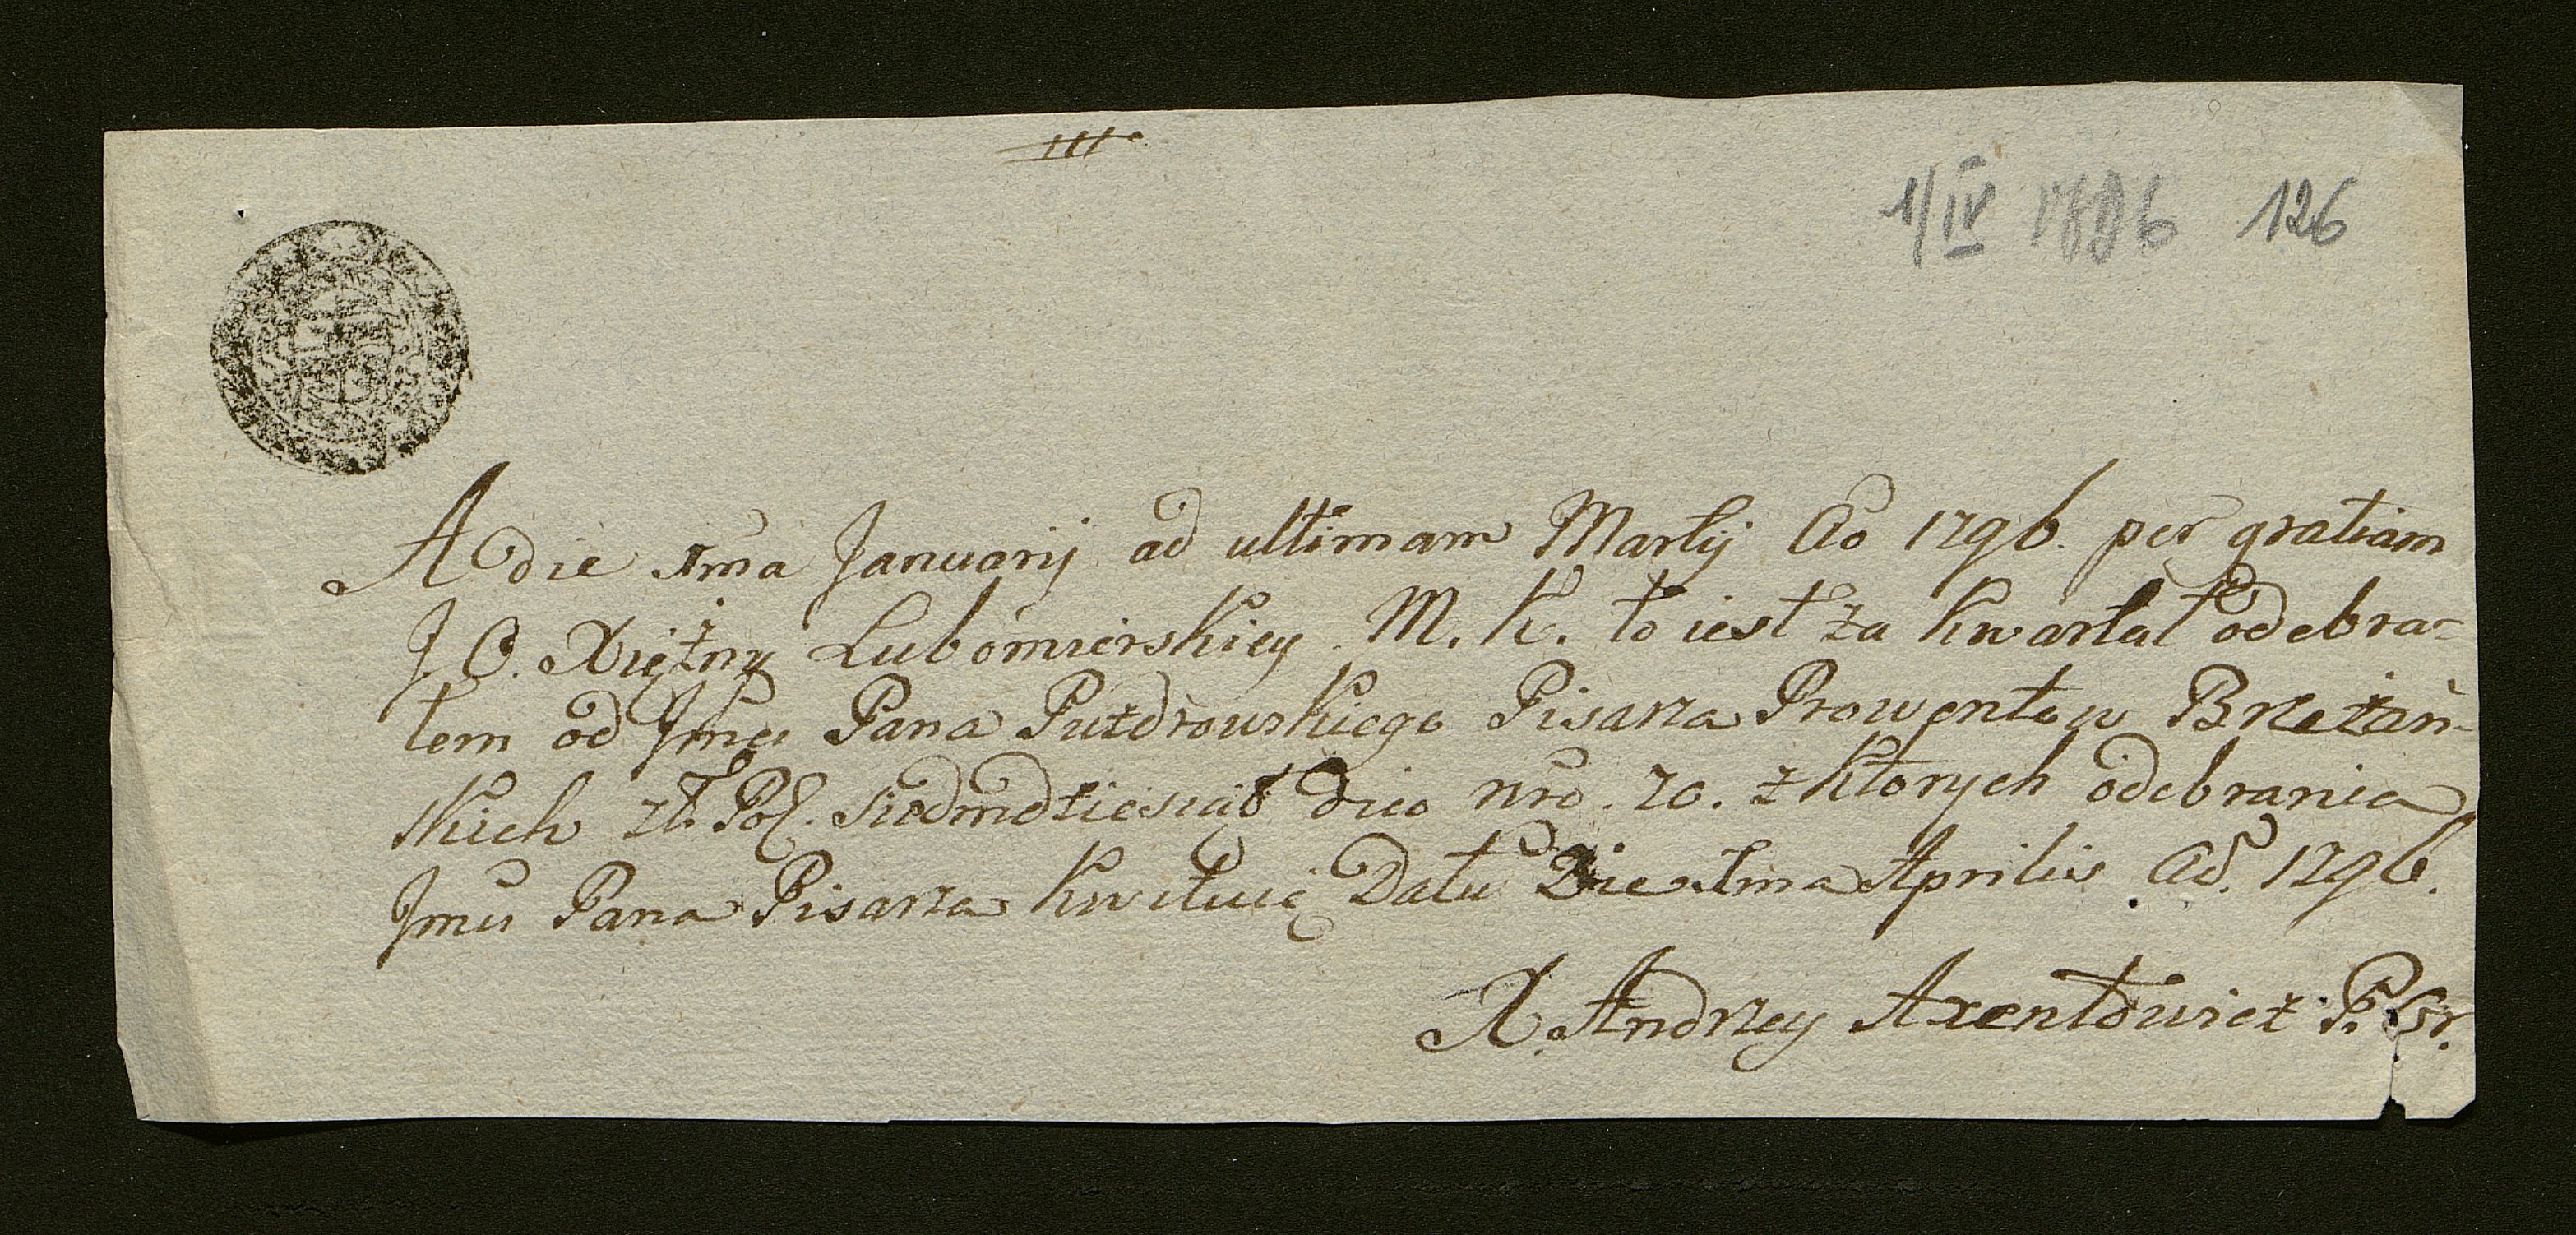 1/IV 1796 126
A die 1ma Januarij ad ultimam Martij Ao 1796. per gratiam
J. O. Xiężny Lubomierskiey M. K. to iest za kwartał odebra=
łem od Jmci Pana Puzdrowskiego Pisarza Prowentow Brzeżań=
skich zł. Pol. siedmdziesiąt dico nro. 70. z ktorych odebrania
Jmci Pana Pisarza kwituię Datũ Die 1ma Aprilis Ao. 1796.
X. Andrzey Axentowicz P.